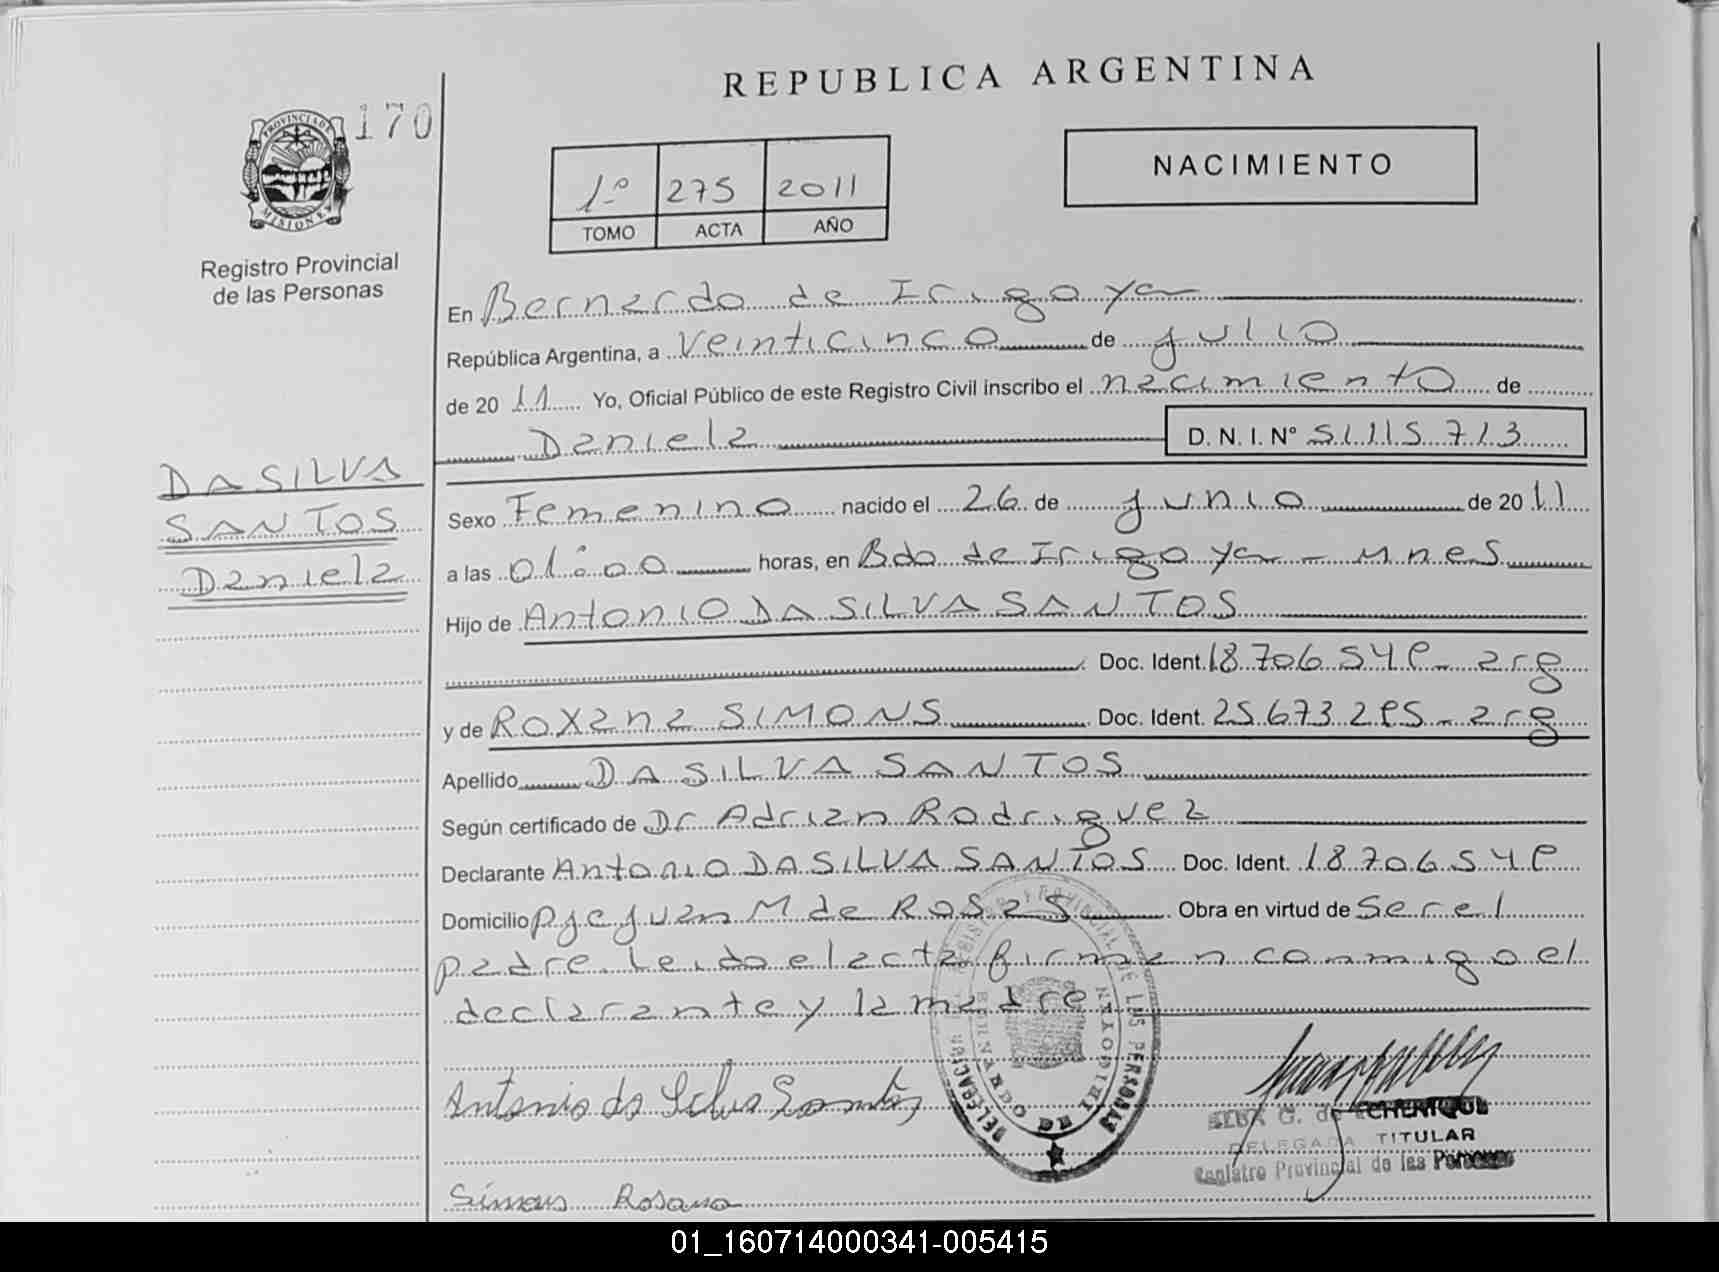 REPUBLICA ARGENTINA
170
PROVINCIA DE
MISIONES
Registro Provincial
de las Personas
NACIMIENTO
1º 275 2011
TOMO ACTA AÑO
En Bernardo de Irigoyen
República Argentina, a veinticinco de julio
de 2011 Yo, Oficial Público de este Registro Civil inscribo el nacimiento de
Daniela D. N. I. Nº 51.115.713
DA SILVA
SANTOS
Daniela
Sexo Femenino nacido el 26 de junio de 2011
a las 01:00 horas, en Bdo de Irigoyen - Mnes
Hijo de Antonio DA SILVA SANTOS
Doc. Ident. 18.706.549- arg
y de Roxana SIMONS Doc. Ident. 25.673.295- arg
Apellido DA SILVA SANTOS
Según certificado de Dr Adrian Rodriguez
Declarante Antonio DA SILVA SANTOS Doc. Ident. 18.706.549
Domicilio pje Juan M de Rosas Obra en virtud de Ser el
padre. Leido el acta firman conmigo el
declarante y la madre
Antonio da Silva Santos
REGISTRO PROVINCIAL DE LAS PERSONAS
DELEGACION
BERNARDO DE IRIGOYEN
DELEGADA TITULAR
Registro Provincial de las Personas
Simons Rosana
01_160714000341-005415